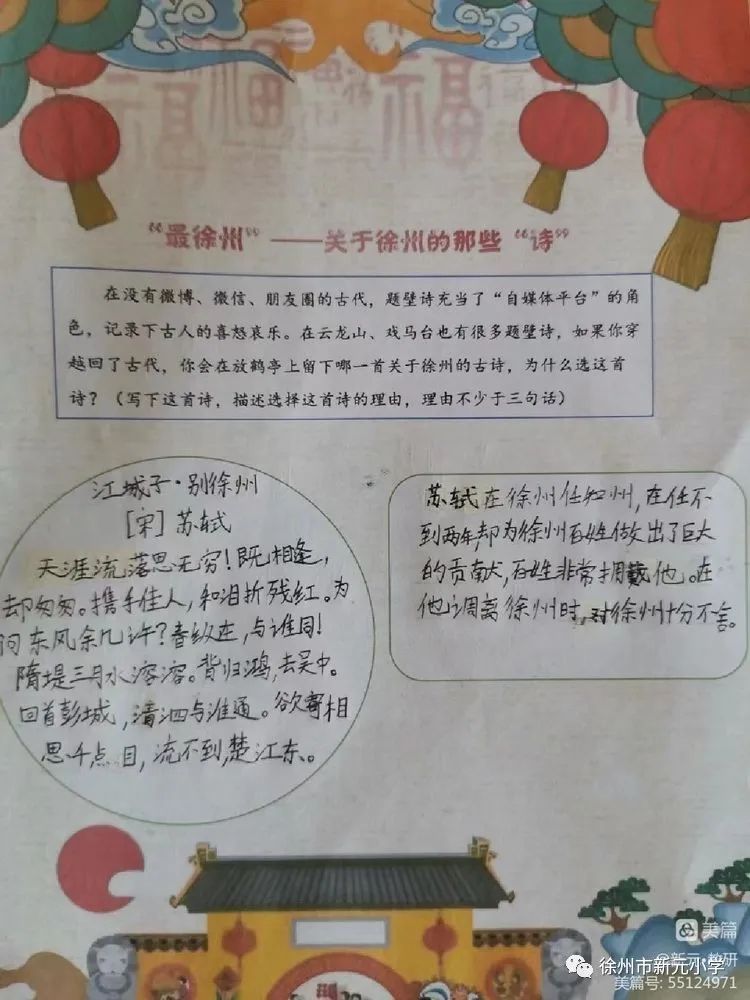 福
福
“最徐州”——关于徐州的那些“诗”
在没有微博、微信、朋友圈的古代，题壁诗充当了“自媒体平台”的角
色，记录下古人的喜怒哀乐。在云龙山、戏马台也有很多题壁诗，如果你穿
越回了古代，你会在放鹤亭上留下哪一首关于徐州的古诗，为什么选这首
诗？（写下这首诗，描述选择这首诗的理由，理由不少于三句话）
江城子·别徐州
[宋] 苏轼
天涯流落思无穷！既相逢，
却匆匆。携手佳人，和泪折残红。为
问东风余几许？春纵在，与谁同！
隋堤三月水溶溶。背归鸿，去吴中。
回首彭城，清泗与淮通。欲寄相
思千点目，流不到，楚江东。
苏轼在徐州任知州，在任不
到两年，却为徐州百姓做出了巨大
的贡献，百姓非常拥戴他。在
他调离徐州时，对徐州十分不舍。
美篇
@新元·教研
徐州市新元小学
美篇号：55124971